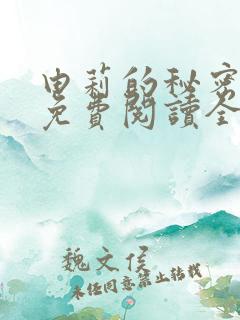 申莉的秘密
免費閱讀全
魏文侯
未经同意禁止转载